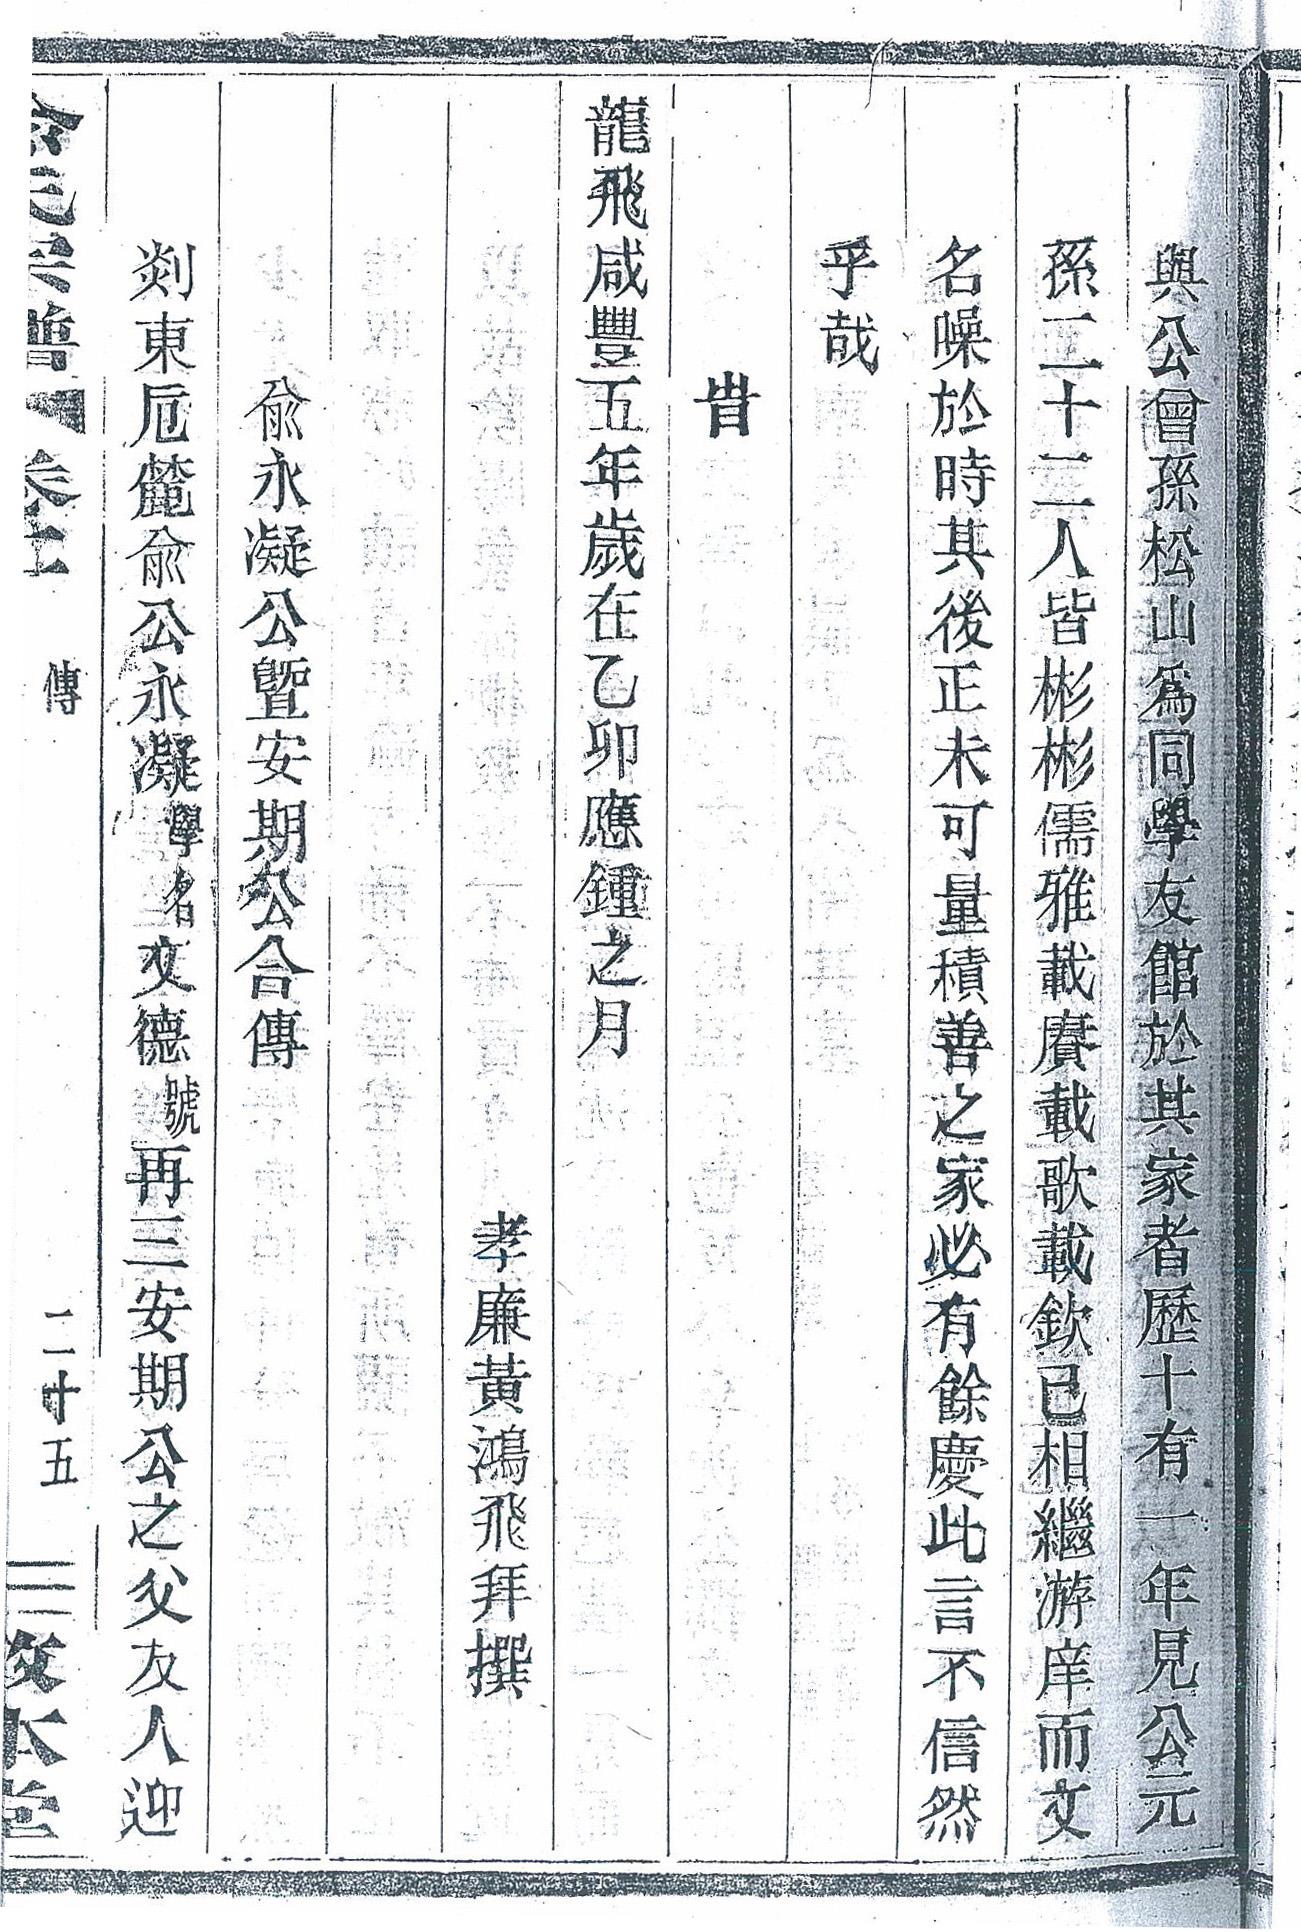 與公曾孫松山爲同學友館於其家者歷十有一年見公元
孫二十二人皆彬彬儒雅載賡載歌載欽已相繼游庠而文
名噪於時其後正未可量積善之家必有餘慶此言不信然
乎哉
旹
龍飛咸豐五年歲在乙卯應鍾之月
孝廉黃鴻飛拜撰
俞永凝公暨安期公合傳
剡東卮蔍俞公永凝學名文德號再三安期公之父友人迎
俞氏宗譜 卷 傳 二十五 敦本堂